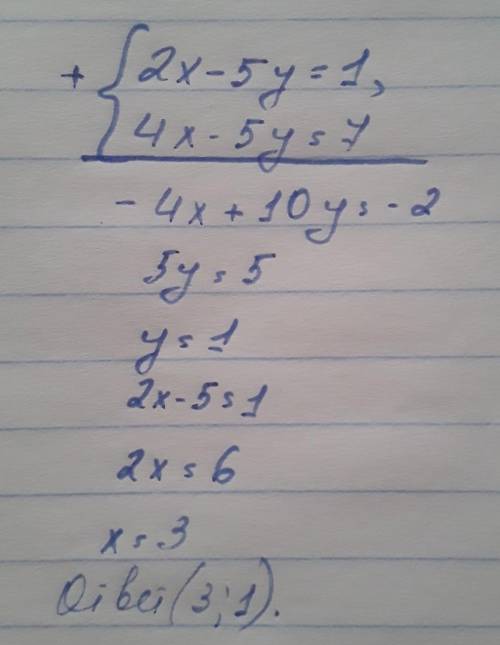 + { 2x - 5y = 1,
4x - 5y = 7
- 4x + 10y = - 2
5y = 5
y = 1
2x - 5 = 1
2x = 6
x = 3
Ответ (3; 1).